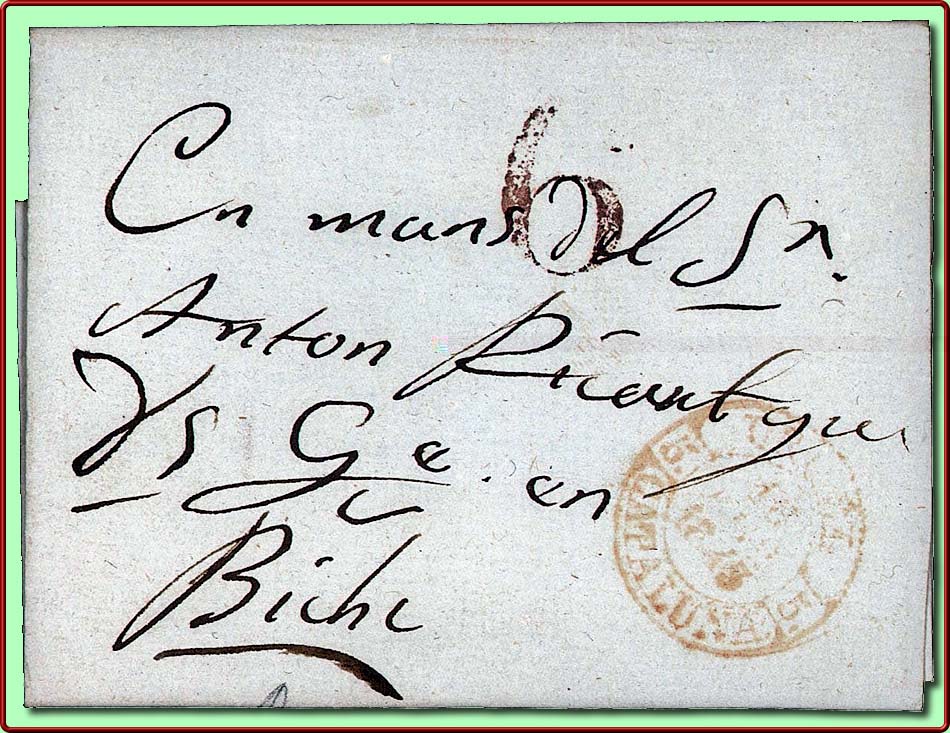 En mans del Sr.
6
Anton Ricart que
Ds Ge. en
Biche
CATALUÑA